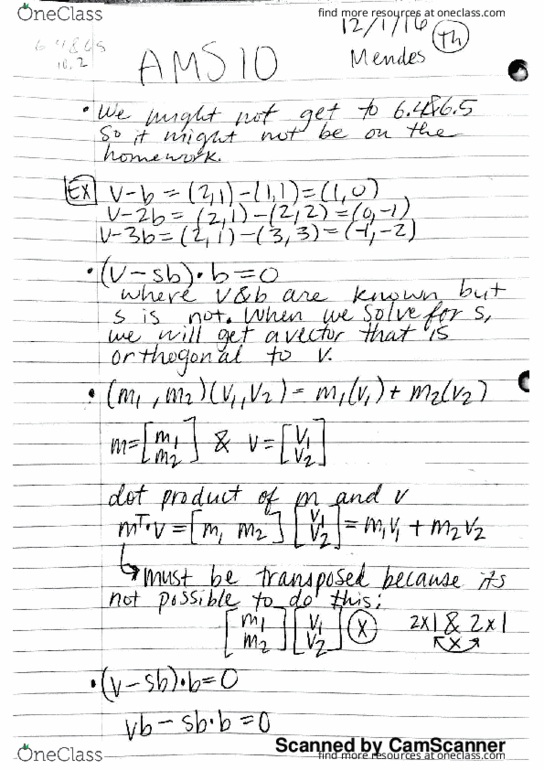 OneClass
find more resources at oneclass.com
12/1/16
Th
6.4 & 6.5
10.2
AMS 10
Mendes
• We might not get to 6.4&6.5
So it might not be on the
homework.
EX V-b = (2,1)-(1,1)=(1,0)
V-2b = (2,1)-(2,2)=(0,-1)
V-3b=(2,1)-(3,3)=(-1,-2)
• (V-sb)•b=0
where V&b are known but
s is not. When we solve for s,
we will get a vector that is
orthogonal to V.
• (m₁, m₂)(V₁,V₂)= m₁(V₁)+m₂(V₂)
m=[m₁ m₂] & V=[V₁ V₂]
dot product of m and v
mᵀ•V=[m₁ m₂][V₁ V₂]=m₁V₁+m₂V₂
↳must be transposed because its
not possible to do this:
[m₁ m₂][V₁ V₂] X 2x1 & 2x1
x
• (V-sb)•b=0
Vb-sb•b=0
Scanned by CamScanner
OneClass
find more resources at oneclass.com